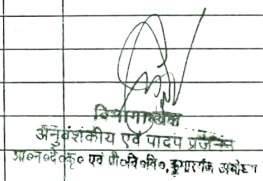 विभागाध्यक्ष
अनुवंशकीय एवं पादप प्रजनन
आ०न०दे०कृ० एवं प्रौ०वि०वि०, कुमारगंज, अयोध्या